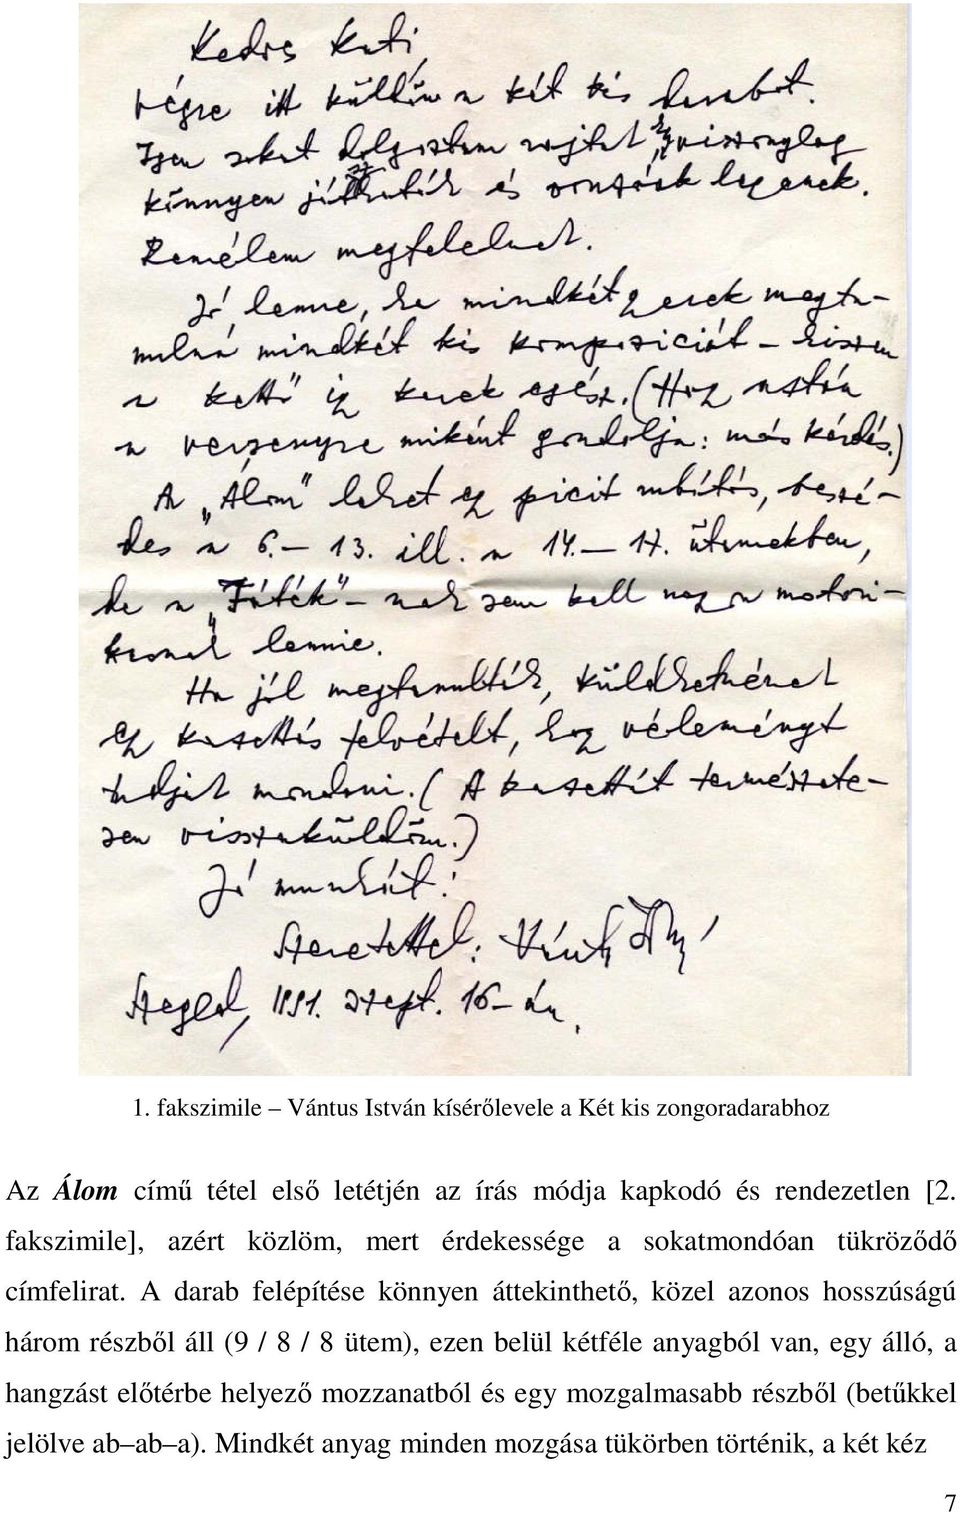 Kedves Kati,
végre itt küldöm a két kis darabot.
Igen sokat dolgoztam rajtuk, viszonylag
könnyen és legyenek.
Remélem megfelelnek.
Jó lenne, ha mindkét gyerek megta-
nulná mindkét kis kompozíciót – hiszen
a kettő így kerek egész. (Hogy aztán
a versenyre miként gondolja: más kérdés.)
Az „Álom" lehet egy picit rubátós, beszé-
des a 6. – 13. ill. a 14. – 17. ütemekben,
de a „Játék" – nak sem kell nagyon motori-
kusnak lennie.
Ha jól megtanulták, küldhetnének
egy kazettás felvételt, hogy véleményt
tudjak mondani. (A kazettát természete-
sen visszaküldöm.)
Jó munkát!
Szeretettel: Vántus István
Szeged, 1991. szept. 16-án.
1. fakszimile – Vántus István kísérőlevele a Két kis zongoradarabhoz
Az Álom című tétel első letétjén az írás módja kapkodó és rendezetlen [2.
fakszimile], azért közlöm, mert érdekessége a sokatmondóan tükröződő
címfelirat. A darab felépítése könnyen áttekinthető, közel azonos hosszúságú
három részből áll (9 / 8 / 8 ütem), ezen belül kétféle anyagból van, egy álló, a
hangzást előtérbe helyező mozzanatból és egy mozgalmasabb részből (betűkkel
jelölve ab–ab–a). Mindkét anyag minden mozgása tükörben történik, a két kéz
7